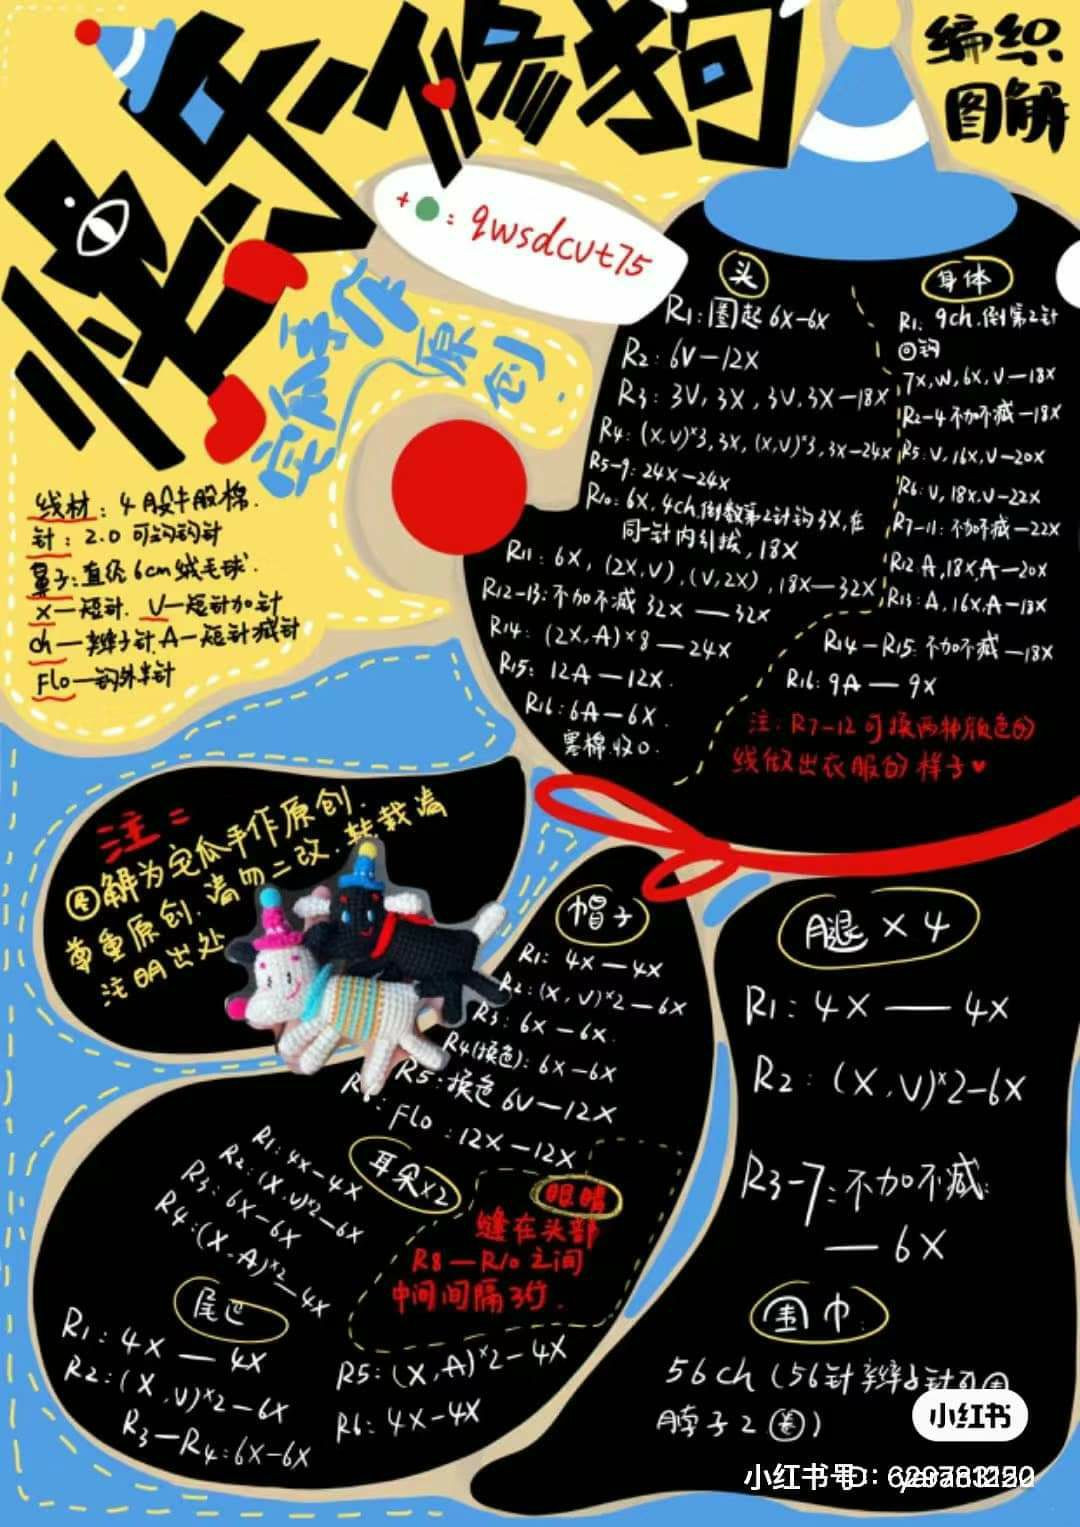 快乐修狗
编织
图解
+ : qwsdcut75
手作
原创.
线材: 4股牛股棉.
针: 2.0可钩钩针
鼻子:直径6cm绒毛球.
X—短针. V—短针加针
ch—辫子针,A—短针减针
Flo—钩外半针
头
R1:圈起6X—6X
R2: 6V—12X
R3: 3V, 3X, 3V, 3X—18X
R4: (X,V)×3, 3X, (X,V)×3, 3X—24X
R5-9: 24X—24X
R10: 6X, 4ch,倒数第2针钩3X,在
同一针内引拔, 18X
R11: 6X, (2X,V), (V,2X), 18X—32X
R12-13:不加不减 32X —32X
R14: (2X,A)×8 —24X
R15: 12A—12X.
R16: 6A—6X.
塞棉收口.
身体
R1: 9ch,倒第2针
回钩
7X, W, 6X, V—18X
R2-4 不加不减—18X
R5: V, 16X, V—20X
R6: V, 18X, V—22X
R7-11: 不加不减—22X
R12 A, 18X, A—20X
R13: A, 16X, A—18X
R14—R15: 不加不减—18X
R16: 9A — 9X
注: R7-12可换两种颜色的
线做出衣服的样子
注=
图解为宅瓜手作原创.
尊重原创.请勿二改.转载请
注明出处
帽子
R1: 4X—4X
R2: (X,V)×2—6X
R3: 6X—6X.
R4(换色): 6X—6X
R5: 换色 6V—12X
Flo: 12X—12X
耳朵×2
R1: 4X—4X
R2: (X,V)×2—6X
R3: 6X—6X
R4: (X,A)×2—4X
眼睛
缝在头部
R8—R10之间
中间间隔3行.
尾巴
R1: 4X — 4X
R2: (X,V)×2—6X
R3—R4: 6X—6X
R5: (X,A)×2—4X
R6: 4X—4X
腿×4
R1: 4X — 4X
R2: (X,V)×2—6X
R3-7: 不加不减:
— 6X
围巾
56ch (56针辫子针可围
脖子2圈)
小红书
小红书号: